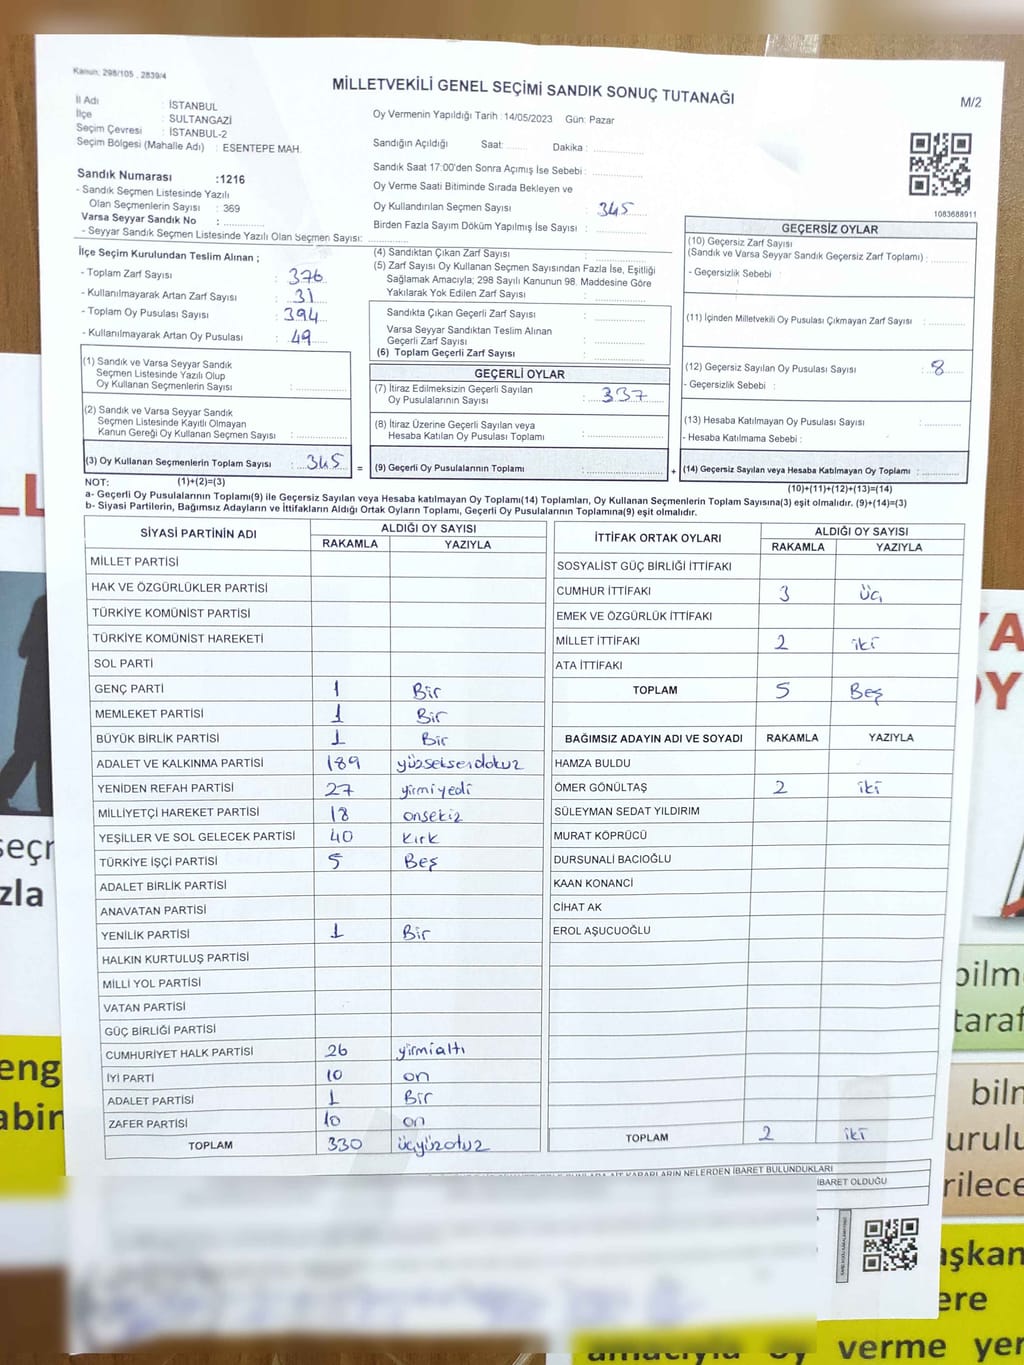 Kanun: 298/105 , 2839/4
MİLLETVEKİLİ GENEL SEÇİMİ SANDIK SONUÇ TUTANAĞI
M/2
İl Adı : İSTANBUL
İlçe : SULTANGAZİ
Seçim Çevresi : İSTANBUL-2
Seçim Bölgesi (Mahalle Adı) : ESENTEPE MAH.
Oy Vermenin Yapıldığı Tarih : 14/05/2023 Gün: Pazar
Sandığın Açıldığı Saat: Dakika :
Sandık Saat 17:00'den Sonra Açımış İse Sebebi :
Oy Verme Saati Bitiminde Sırada Bekleyen ve
Oy Kullandırılan Seçmen Sayısı : 345
Birden Fazla Sayım Döküm Yapılmış İse Sayısı :
1083688911
Sandık Numarası :1216
- Sandık Seçmen Listesinde Yazılı
Olan Seçmenlerin Sayısı : 369
Varsa Seyyar Sandık No :
- Seyyar Sandık Seçmen Listesinde Yazılı Olan Seçmen Sayısı:
İlçe Seçim Kurulundan Teslim Alınan ;
- Toplam Zarf Sayısı : 376
- Kullanılmayarak Artan Zarf Sayısı : 31
- Toplam Oy Pusulası Sayısı : 394
- Kullanılmayarak Artan Oy Pusulası : 49
(1) Sandık ve Varsa Seyyar Sandık
Seçmen Listesinde Yazılı Olup
Oy Kullanan Seçmenlerin Sayısı :
(2) Sandık ve Varsa Seyyar Sandık
Seçmen Listesinde Kayıtlı Olmayan
Kanun Gereği Oy Kullanan Seçmen Sayısı :
(3) Oy Kullanan Seçmenlerin Toplam Sayısı : 345
(4) Sandıktan Çıkan Zarf Sayısı :
(5) Zarf Sayısı Oy Kullanan Seçmen Sayısından Fazla İse, Eşitliği
Sağlamak Amacıyla; 298 Sayılı Kanunun 98. Maddesine Göre
Yakılarak Yok Edilen Zarf Sayısı :
Sandıkta Çıkan Geçerli Zarf Sayısı :
Varsa Seyyar Sandıktan Teslim Alınan
Geçerli Zarf Sayısı :
(6) Toplam Geçerli Zarf Sayısı :
GEÇERLİ OYLAR
(7) İtiraz Edilmeksizin Geçerli Sayılan
Oy Pusulalarının Sayısı : 337
(8) İtiraz Üzerine Geçerli Sayılan veya
Hesaba Katılan Oy Pusulası Toplamı :
= (9) Geçerli Oy Pusulalarının Toplamı :
GEÇERSİZ OYLAR
(10) Geçersiz Zarf Sayısı
(Sandık ve Varsa Seyyar Sandık Geçersiz Zarf Toplamı) :
- Geçersizlik Sebebi :
(11) İçinden Milletvekili Oy Pusulası Çıkmayan Zarf Sayısı :
(12) Geçersiz Sayılan Oy Pusulası Sayısı : 8
- Geçersizlik Sebebi :
(13) Hesaba Katılmayan Oy Pusulası Sayısı :
- Hesaba Katılmama Sebebi :
+ (14) Geçersiz Sayılan veya Hesaba Katılmayan Oy Toplamı :
NOT: (1)+(2)=(3)
(10)+(11)+(12)+(13)=(14)
a- Geçerli Oy Pusulalarının Toplamı(9) ile Geçersiz Sayılan veya Hesaba katılmayan Oy Toplamı(14) Toplamları, Oy Kullanan Seçmenlerin Toplam Sayısına(3) eşit olmalıdır. (9)+(14)=(3)
b- Siyasi Partilerin, Bağımsız Adayların ve İttifakların Aldığı Ortak Oyların Toplamı, Geçerli Oy Pusulalarının Toplamına(9) eşit olmalıdır.
SİYASİ PARTİNİN ADI ALDIĞI OY SAYISI
RAKAMLA YAZIYLA
MİLLET PARTİSİ
HAK VE ÖZGÜRLÜKLER PARTİSİ
TÜRKİYE KOMÜNİST PARTİSİ
TÜRKİYE KOMÜNİST HAREKETİ
SOL PARTİ
GENÇ PARTİ 1 Bir
MEMLEKET PARTİSİ 1 Bir
BÜYÜK BİRLİK PARTİSİ 1 Bir
ADALET VE KALKINMA PARTİSİ 189 yüzseksendokuz
YENİDEN REFAH PARTİSİ 27 yirmiyedi
MİLLİYETÇİ HAREKET PARTİSİ 18 onsekiz
YEŞİLLER VE SOL GELECEK PARTİSİ 40 kırk
TÜRKİYE İŞÇİ PARTİSİ 5 Beş
ADALET BİRLİK PARTİSİ
ANAVATAN PARTİSİ
YENİLİK PARTİSİ 1 Bir
HALKIN KURTULUŞ PARTİSİ
MİLLİ YOL PARTİSİ
VATAN PARTİSİ
GÜÇ BİRLİĞİ PARTİSİ
CUMHURİYET HALK PARTİSİ 26 yirmialtı
İYİ PARTİ 10 on
ADALET PARTİSİ 1 Bir
ZAFER PARTİSİ 10 on
TOPLAM 330 üçyüzotuz
İTTİFAK ORTAK OYLARI ALDIĞI OY SAYISI
RAKAMLA YAZIYLA
SOSYALİST GÜÇ BİRLİĞİ İTTİFAKI
CUMHUR İTTİFAKI 3 üç
EMEK VE ÖZGÜRLÜK İTTİFAKI
MİLLET İTTİFAKI 2 iki
ATA İTTİFAKI
TOPLAM 5 Beş
BAĞIMSIZ ADAYIN ADI VE SOYADI RAKAMLA YAZIYLA
HAMZA BULDU
ÖMER GÖNÜLTAŞ 2 iki
SÜLEYMAN SEDAT YILDIRIM
MURAT KÖPRÜCÜ
DURSUNALİ BACIOĞLU
KAAN KONANCİ
CİHAT AK
EROL AŞUCUOĞLU
TOPLAM 2 iki
NELERDEN İBARET BULUNDUKLARI
İBARET OLDUĞU
seçr
zla
eng
abin
YA
OY
bilm
taraf
biln
urulu
rilece
aşkan
ere
amacıyla oy verme yer